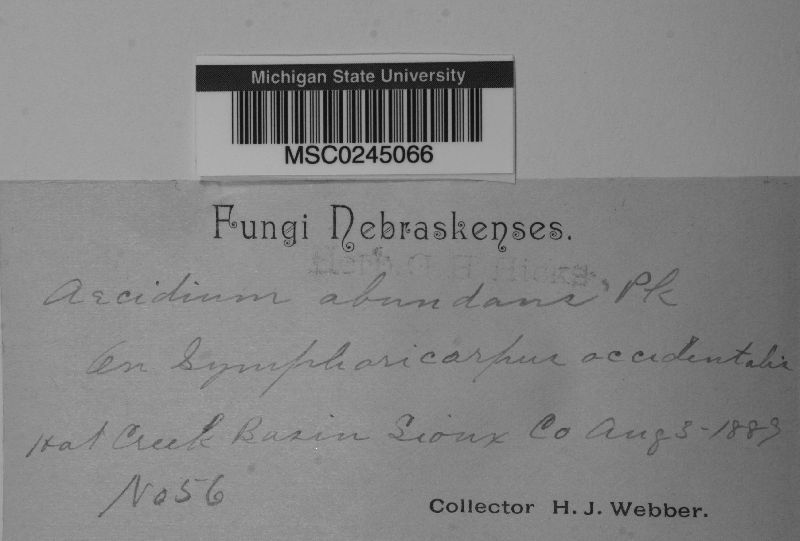 Michigan State University
MSC0245066
Fungi Nebraskenses.
Aecidium abundans, Pk
On Symphoricarpus occidentalis
Hat Creek Basin Sioux Co Aug 3-1889
No 56
Collector H. J. Webber.